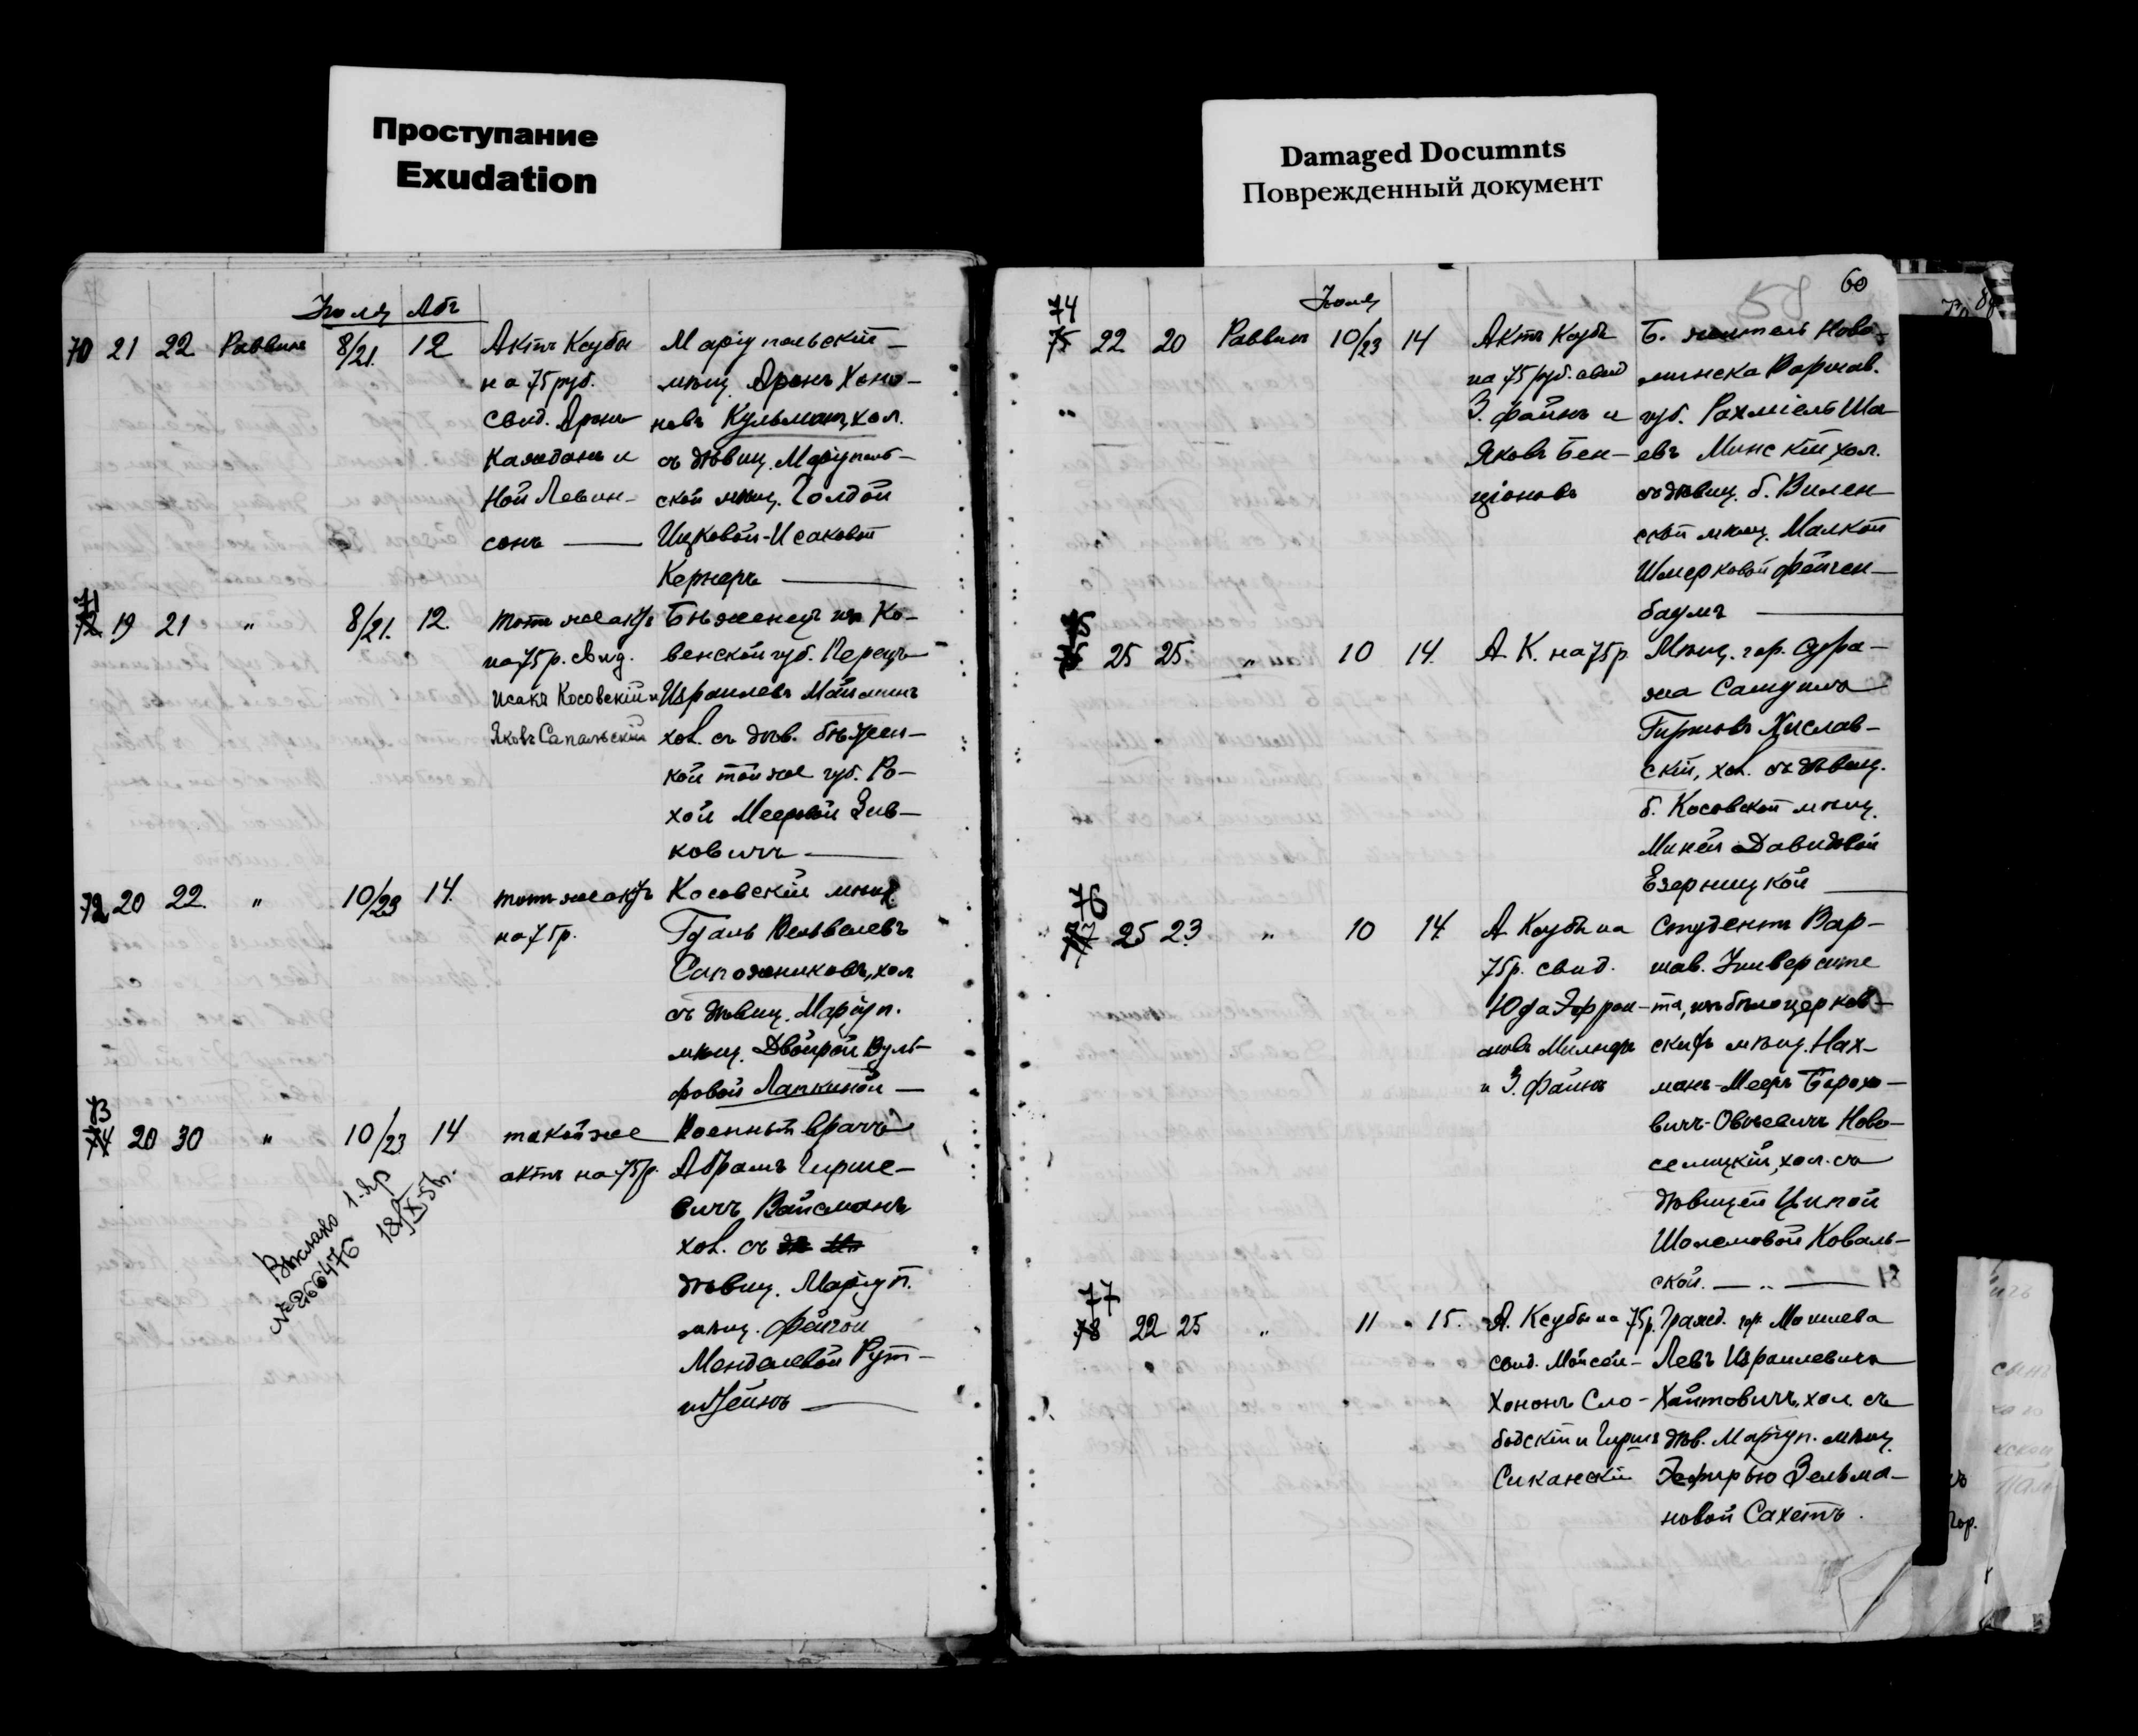 Проступание
Exudation
Damaged Documnts
Поврежденный документ
Іюля Абъ
70 21 22 Раввинъ 8/21. 12 Актъ Ксубы
на 75 руб.
свид. Аронъ
и
ной Левин-
сонъ —
Маріупольскій
мѣщ. Аронъ Хоно-
новъ Кульманъ, хол.
съ дѣвиц. Маріуполь-
ской мѣщ. Голдой
Ицковой-Исаковой
Кернеръ —
71
72 19 21 " 8/21. 12. тотъ же актъ
на 75 р. свид.
Исакъ Косовскій и
Яковъ Сапальскій
Бѣженецъ изъ Ко-
венской губ. Перецъ
Израилевъ
хол. съ дѣв. бѣжен-
кой той же губ. Ро-
хой Мееровой Зив-
ковичъ —
72 20 22. " 10/23 14. тотъ же актъ
на 75 р.
Косовскій мѣщ.
Гдаль Вельвелевъ
Сапожниковъ, хол
съ дѣвиц. Маріуп.
мѣщ. Двойрой Вуль-
фовой Лапкиной —
73
74 20 30 " 10/23 14 такой же
актъ на 75 р.
Военный врачъ
Абрамъ Гирше-
вичъ Вайсманъ
хол. съ
дѣвиц. Маріуп.
мѣщ. Фейгой
Менделевой Рут-
штейнъ —
1-яр
№ 266476
18/IX-51г.
60
58
Іюля
74
75 22 20 Раввинъ 10/23 14 Актъ Ксубы
на 75 руб. свид
З. Файнъ и
Яковъ Бен-
ціоновъ
Б. житель Ново-
минска Варшав.
губ. Рахміель Ша-
евъ Минскій, хол.
съ дѣвиц. б. Вилен-
ской мѣщ. Малкой
Шмерковой Фейген-
баумъ —
75
76 25 25 " 10 14. А. К. на 75 р.
Мѣщ. гор. Сура-
жа Самуилъ
Гиршовъ Хислав-
скій, хол. съ дѣвиц.
б. Косовской мѣщ.
Миней Давидовой
Езерницкой —
76
77 25 23 " 10 14. А Ксубы на
75 р. свид.
Юда Эфрои-
мовъ Милнеръ
и З. Файнъ
Студентъ Вар-
шав. Университе
та, изъ бѣлоцерков-
скихъ мѣщ. Нах-
манъ-Мееръ Борохо-
вичъ-Овсѣевичъ Ново-
селицкій, хол. съ
дѣвицей Ципой
Шолемовой Коваль-
ской. — " —
77
78 22 25 " 11 15. А. Ксубы на 75 р.
свид. Мойсей-
Хононъ Сло-
бодскій и Гиршъ
Сиканскій
Гражд. гор. Могилева
Левъ Израилевичъ
Хайтовичъ, хол. съ
дѣв. Маріуп. мѣщ.
Эсфирью Зельма-
новой Сахетъ.